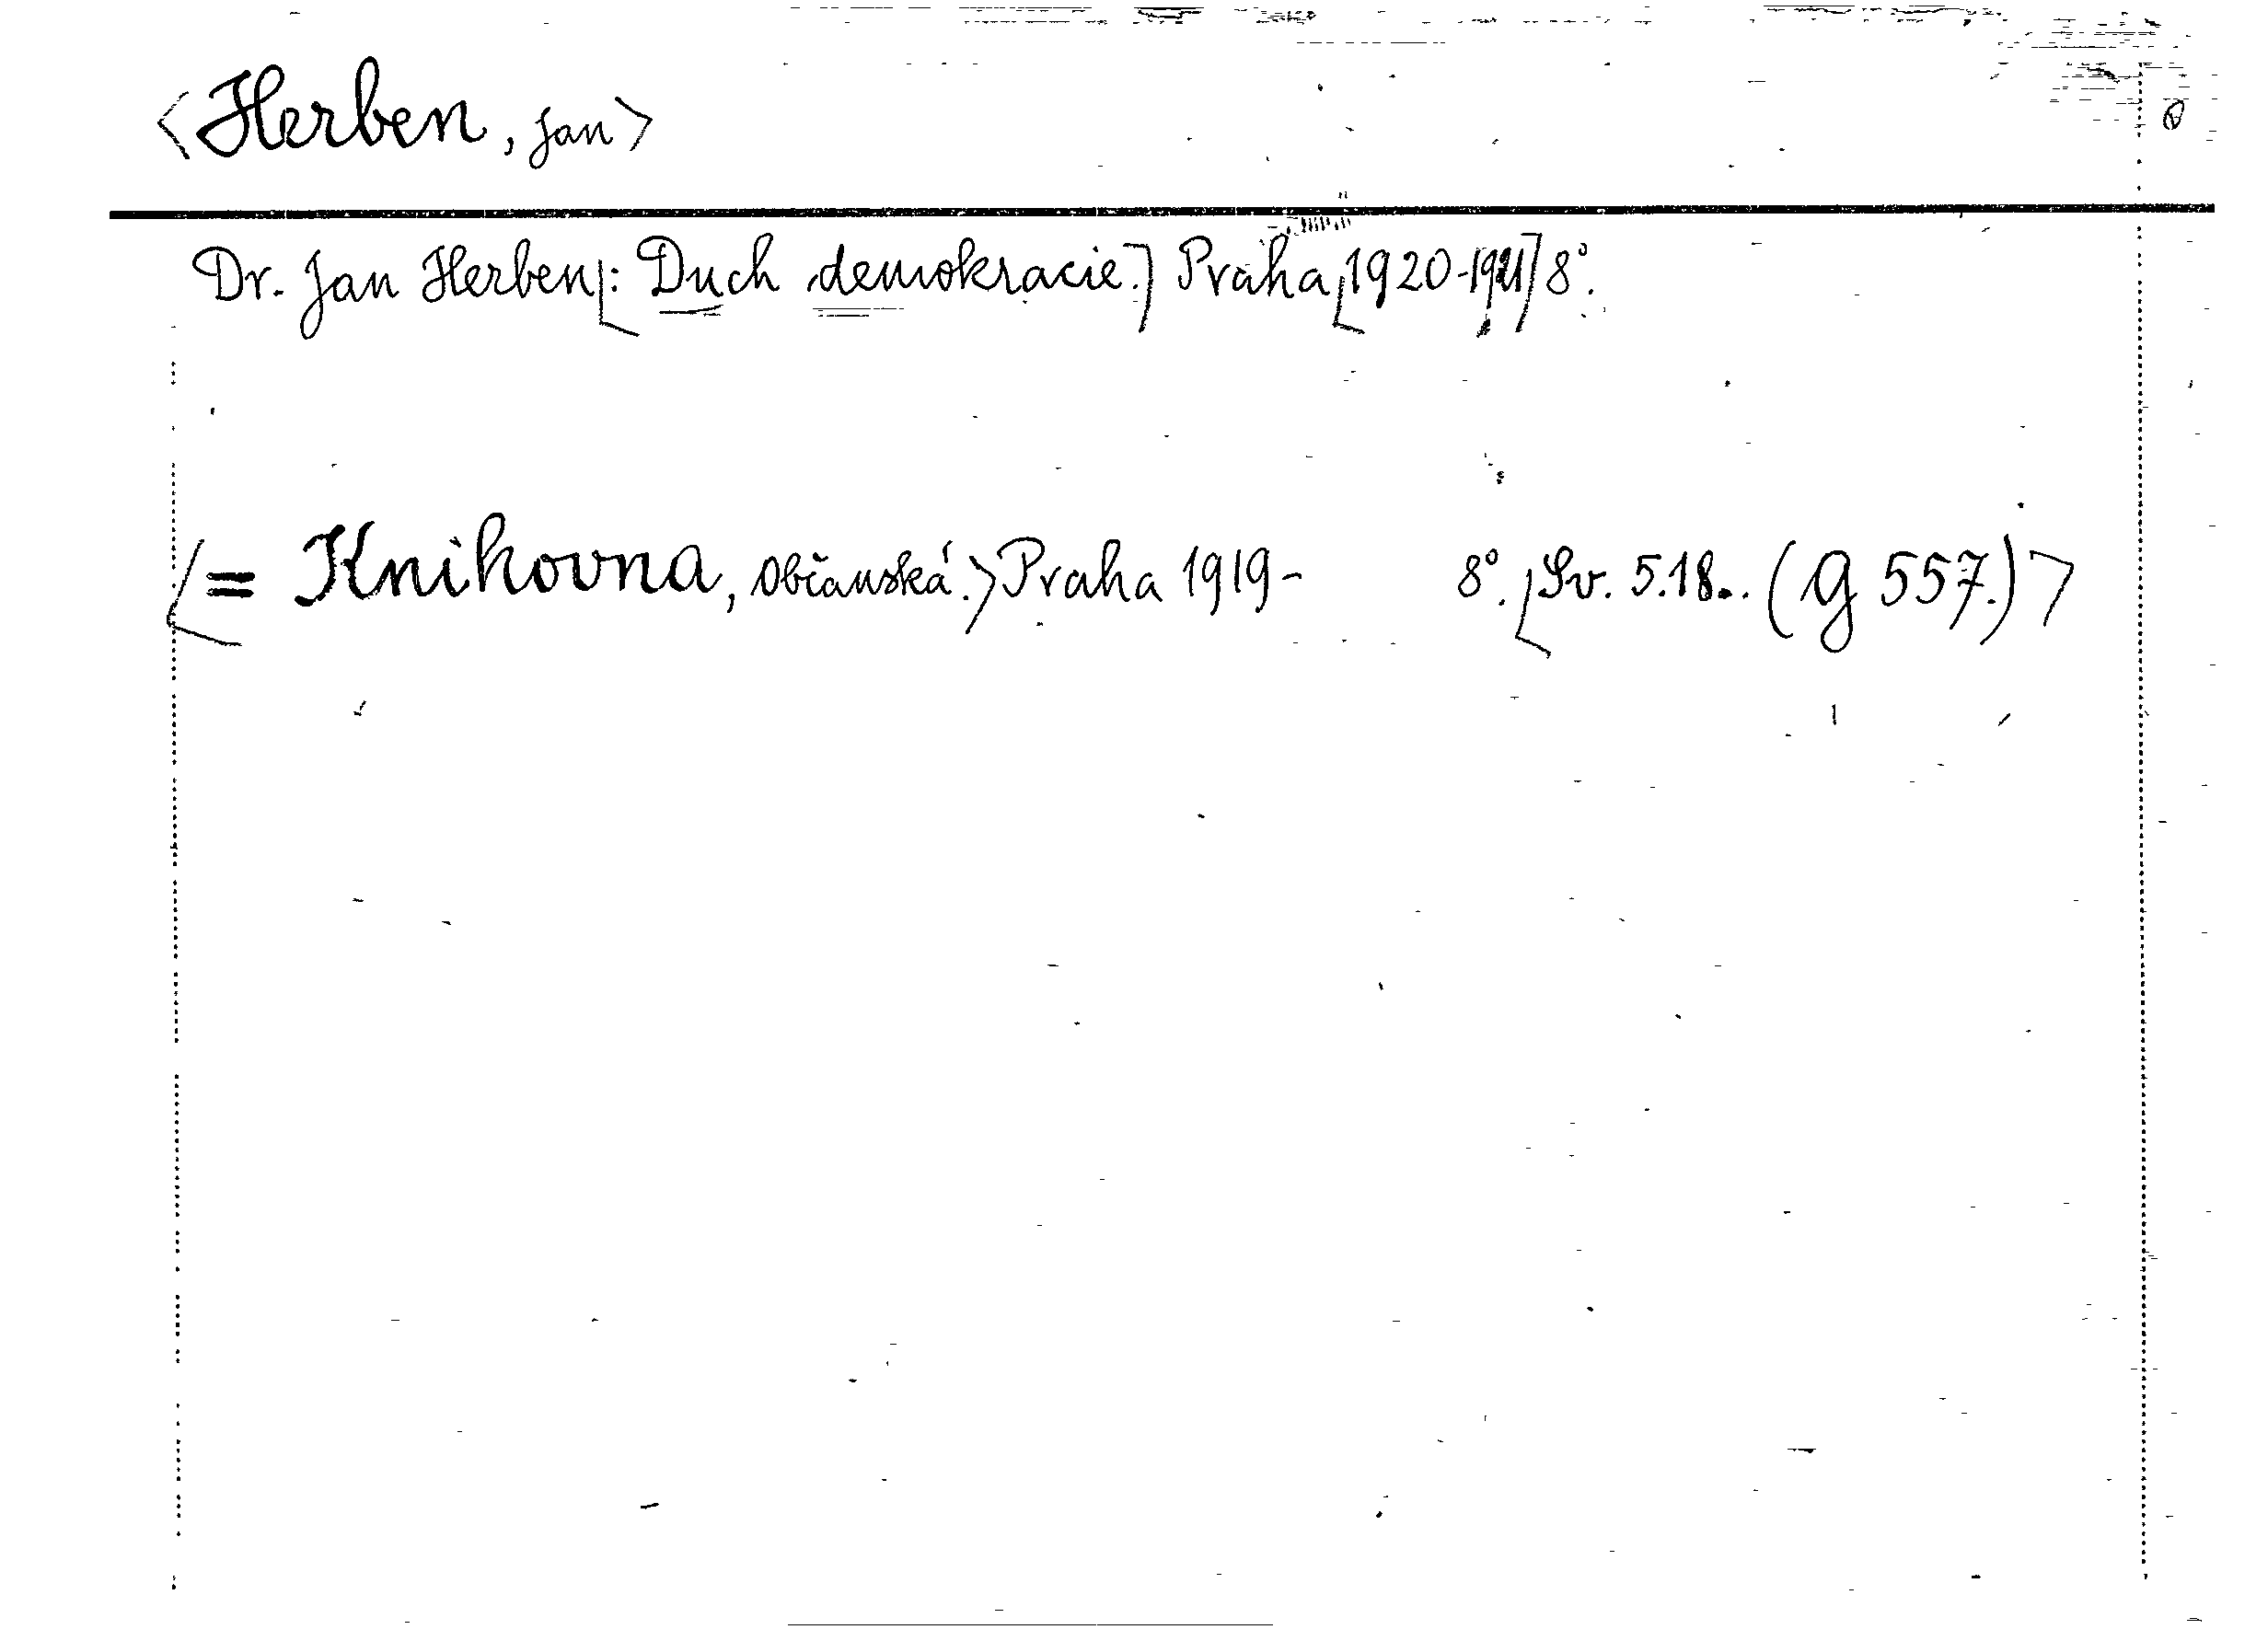 <Herben, Jan>
Dr. Jan Herben[: Duch demokracie.] Praha [1920-1921] 8°.
[= Knihovna, občanská.> Praha 1919- 8°. [Sv. 5.18.. (G 557.)]